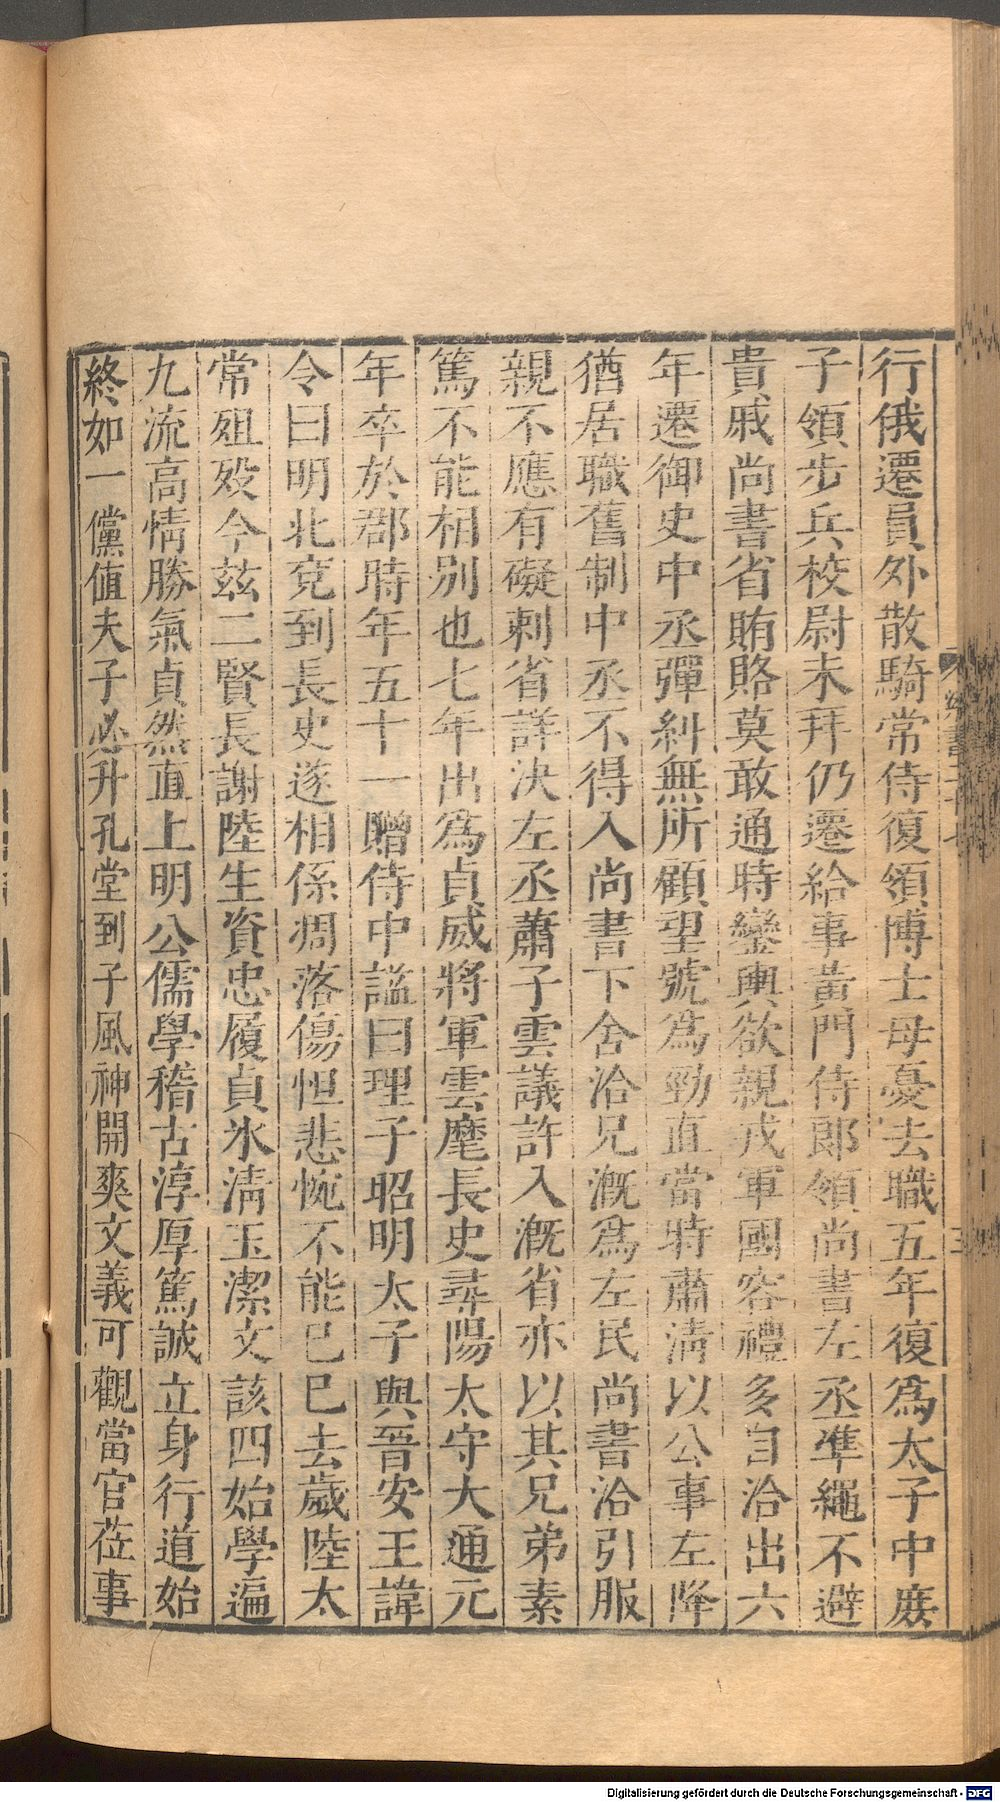 行俄遷員外散騎常侍復領博士母憂去職五年復爲太子中庶
子領步兵校尉未拜仍遷給事黃門侍郎領尚書左丞準繩不避
貴戚尚書省賄賂莫敢通時鑾輿欲親戎軍國容禮多自洽出六
年遷御史中丞彈糾無所顧望號爲勁直當時肅淸以公事左降
猶居職舊制中丞不得入尚書下舍洽兄漑爲左民尚書洽引服
親不應有礙刺省詳決左丞蕭子雲議許入漑省亦以其兄弟素
篤不能相别也七年出爲貞威將軍雲麾長史尋陽太守大通元
年卒於郡時年五十一贈侍中諡曰理子昭明太子與晉安王諱
令曰明北兗到長史遂相係凋落傷怛悲惋不能已已去歲陸太
常殂歿今茲二賢長謝陸生資忠履貞氷淸玉潔文該四始學遍
九流高情勝氣貞然直上明公儒學稽古淳厚篤誠立身行道始
終如一儻値夫子必升孔堂到子風神開爽文義可觀當官莅事
Digitalisierung gefördert durch die Deutsche Forschungsgemeinschaft - DFG